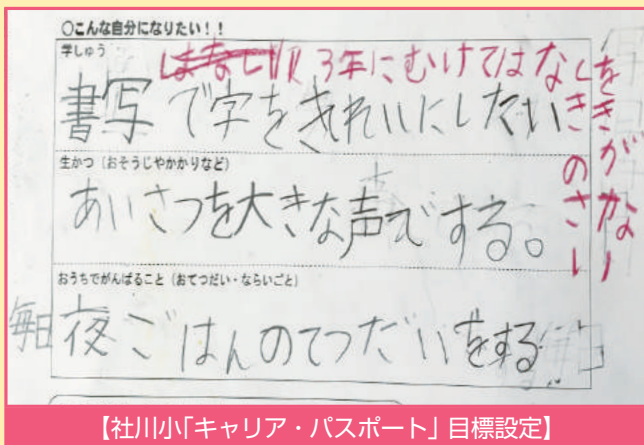 ○こんな自分になりたい！！
学しゅう
3年にむけてはなし
書写で字をきれいにしたい
をきがかな
生かつ（おそうじやかかりなど）
あいさつを大きな声でする。
おうちでがんばること（おてつだい・ならいごと）
毎日
夜ごはんのてつだいをする
【社川小「キャリア・パスポート」目標設定】